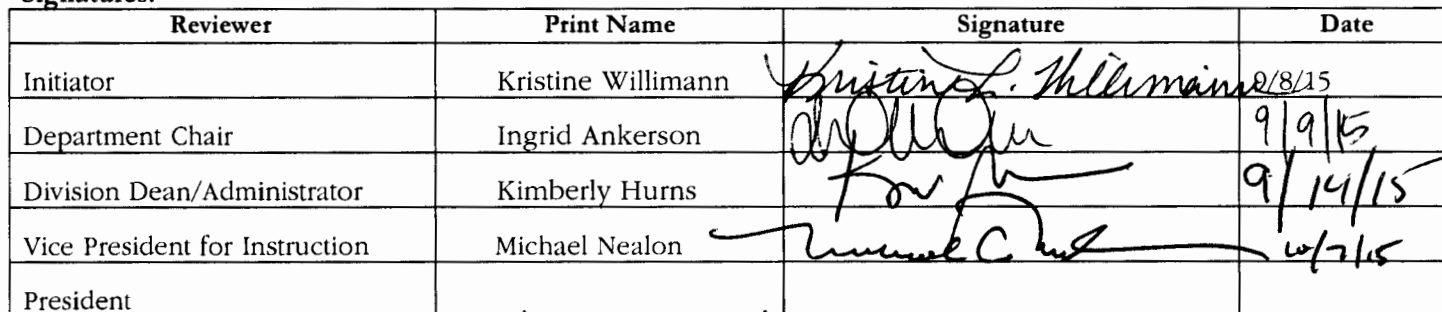 Signatures:
Reviewer Print Name Signature Date
Initiator Kristine Willimann Kristine L. Willimann 9/8/15
Department Chair Ingrid Ankerson 9/9/15
Division Dean/Administrator Kimberly Hurns 9/14/15
Vice President for Instruction Michael Nealon 10/7/15
President